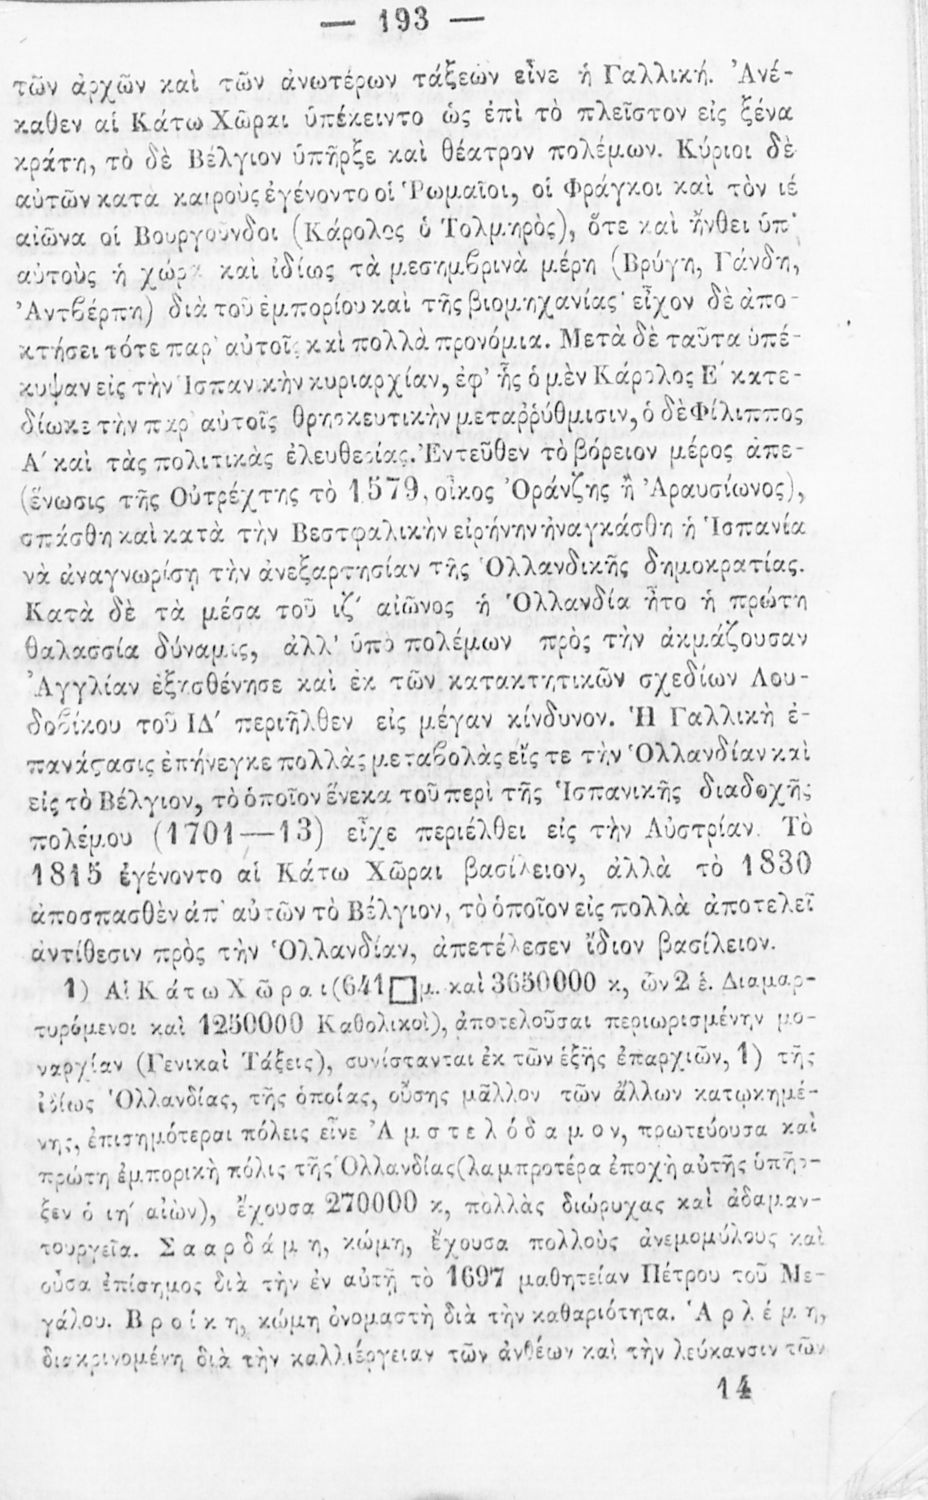 — 193 —
τῶν ἀρχῶν καὶ τῶν ἀνωτέρων τάξεων εἶνε ἡ Γαλλική. Ἀνέ-
καθεν αἱ Κάτω Χῶραι ὑπέκειντο ὡς ἐπὶ τὸ πλεῖστον εἰς ξένα
κράτη, τὸ δὲ Βέλγιον ὑπῆρξε καὶ θέατρον πολέμων. Κύριοι δὲ
αὐτῶν κατὰ καιροὺς ἐγένοντο οἱ Ῥωμαῖοι, οἱ Φράγκοι καὶ τὸν ιέ
αἰῶνα οἱ Βουργοῦνδοι (Κάρολος ὁ Τολμηρὸς), ὅτε καὶ ἤνθει ὑπ'
αὐτοὺς ἡ χώρα καὶ ἰδίως τὰ μεσημβρινὰ μέρη (Βρύγη, Γάνδη,
Ἀντβέρπη) διὰ τοῦ ἐμπορίου καὶ τῆς βιομηχανίας· εἶχον δὲ ἀπο-
κτήσει τότε παρ' αὐτοῖς καὶ πολλὰ προνόμια. Μετὰ δὲ ταῦτα ὑπέ-
κυψαν εἰς τὴν Ἱσπανικὴν κυριαρχίαν, ἐφ' ἧς ὁ μὲν Κάρολος Ε΄ κατε-
δίωκε τὴν παρ' αὐτοῖς θρησκευτικὴν μεταῤῥύθμισιν, ὁ δὲ Φίλιππος
Α΄ καὶ τὰς πολιτικὰς ἐλευθερίας. Ἐντεῦθεν τὸ βόρειον μέρος ἀπε-
(ἕνωσις τῆς Οὐτρέχτης τὸ 1579, οἶκος Ὀράνζης ἢ Ἀραυσίωνος),
σπάσθη καὶ κατὰ τὴν Βεστφαλικὴν εἰρήνην ἠναγκάσθη ἡ Ἱσπανία
νὰ ἀναγνωρίσῃ τὴν ἀνεξαρτησίαν τῆς Ὁλλανδικῆς δημοκρατίας.
Κατὰ δὲ τὰ μέσα τοῦ ιζ΄ αἰῶνος ἡ Ὁλλανδία ἦτο ἡ πρώτη
θαλασσία δύναμις, ἀλλ' ὑπὸ πολέμων πρὸς τὴν ἀκμάζουσαν
Ἀγγλίαν ἐξησθένησε καὶ ἐκ τῶν κατακτητικῶν σχεδίων Λου-
δοβίκου τοῦ ΙΔ΄ περιῆλθεν εἰς μέγαν κίνδυνον. Ἡ Γαλλικὴ ἐ-
πανάςασις ἐπήνεγκε πολλὰς μεταβολὰς εἴς τε τὴν Ὁλλανδίαν καὶ
εἰς τὸ Βέλγιον, τὸ ὁποῖον ἕνεκα τοῦ περὶ τῆς Ἱσπανικῆς διαδοχῆς
πολέμου (1701—13) εἶχε περιέλθει εἰς τὴν Αὐστρίαν. Τὸ
1815 ἐγένοντο αἱ Κάτω Χῶραι βασίλειον, ἀλλὰ τὸ 1830
ἀποσπασθὲν ἀπ' αὐτῶν τὸ Βέλγιον, τὸ ὁποῖον εἰς πολλὰ ἀποτελεῖ
ἀντίθεσιν πρὸς τὴν Ὁλλανδίαν, ἀπετέλεσεν ἴδιον βασίλειον.
1) Αἱ Κάτω Χῶραι (641□μ. καὶ 3650000 κ, ὧν 2 ἑ. Διαμαρ-
τυρόμενοι καὶ 1250000 Καθολικοὶ), ἀποτελοῦσαι περιωρισμένην μο-
ναρχίαν (Γενικαὶ Τάξεις), συνίστανται ἐκ τῶν ἑξῆς ἐπαρχιῶν, 1) τῆς
ἰδίως Ὁλλανδίας, τῆς ὁποίας, οὔσης μᾶλλον τῶν ἄλλων κατῳκημέ-
νης, ἐπισημότεραι πόλεις εἶνε Ἀμστελόδαμον, πρωτεύουσα καὶ
πρώτη ἐμπορικὴ πόλις τῆς Ὁλλανδίας (λαμπροτέρα ἐποχὴ αὐτῆς ὑπῆρ-
ξεν ὁ ιη΄ αἰὼν), ἔχουσα 270000 κ, πολλὰς διώρυχας καὶ ἀδαμαν-
τουργεῖα. Σααρδάμη, κώμη, ἔχουσα πολλοὺς ἀνεμομύλους καὶ
οὖσα ἐπίσημος διὰ τὴν ἐν αὐτῇ τὸ 1697 μαθητείαν Πέτρου τοῦ Με-
γάλου. Βροίκη, κώμη ὀνομαστὴ διὰ τὴν καθαριότητα. Ἁρλέμη,
διακρινομένη διὰ τὴν καλλιέργειαν τῶν ἀνθέων καὶ τὴν λεύκανσιν τῶν
14